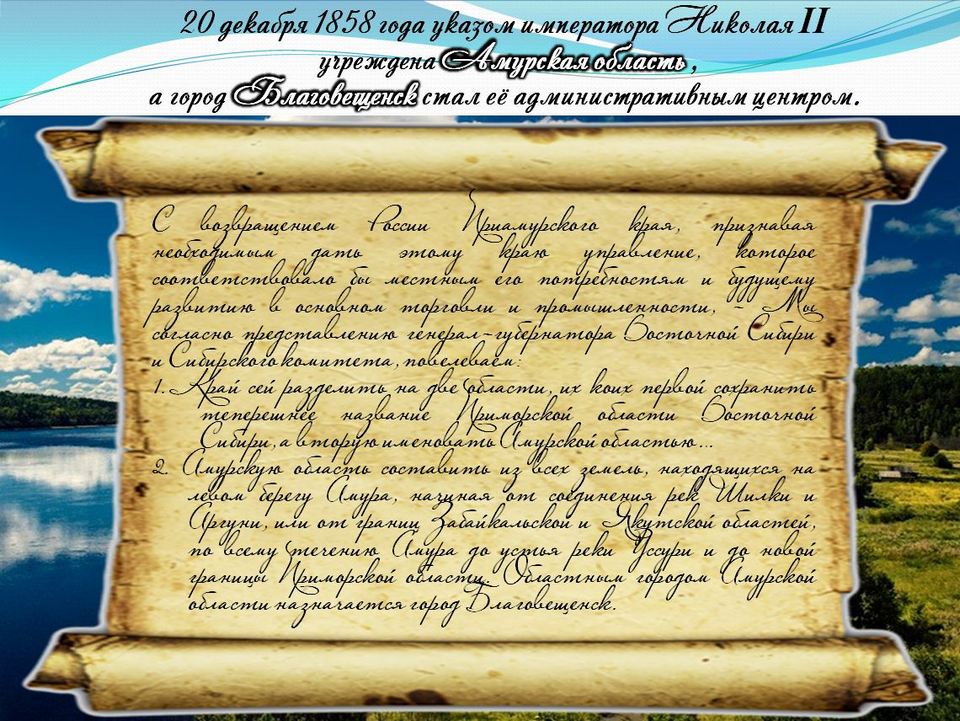 20 декабря 1858 года указом императора Николая II
учреждена Амурская область ,
а город Благовещенск стал её административным центром.
С возвращением России Приамурского края, признавая
необходимым дать этому краю управление, которое
соответствовало бы местным его потребностям и будущему
развитию в основном торговли и промышленности, - Мы
согласно представлению генерал-губернатора Восточной Сибири
и Сибирского комитета, повелеваем:
1. Край сей разделить на две области, их коих первой сохранить
теперешнее название Приморской области Восточной
Сибири, а вторую именовать Амурской областью...
2. Амурскую область составить из всех земель, находящихся на
левом берегу Амура, начиная от соединения рек Шилки и
Аргуни, или от границ Забайкальской и Якутской областей,
по всему течению Амура до устья реки Уссури и до новой
границы Приморской области. Областным городом Амурской
области назначается город Благовещенск.